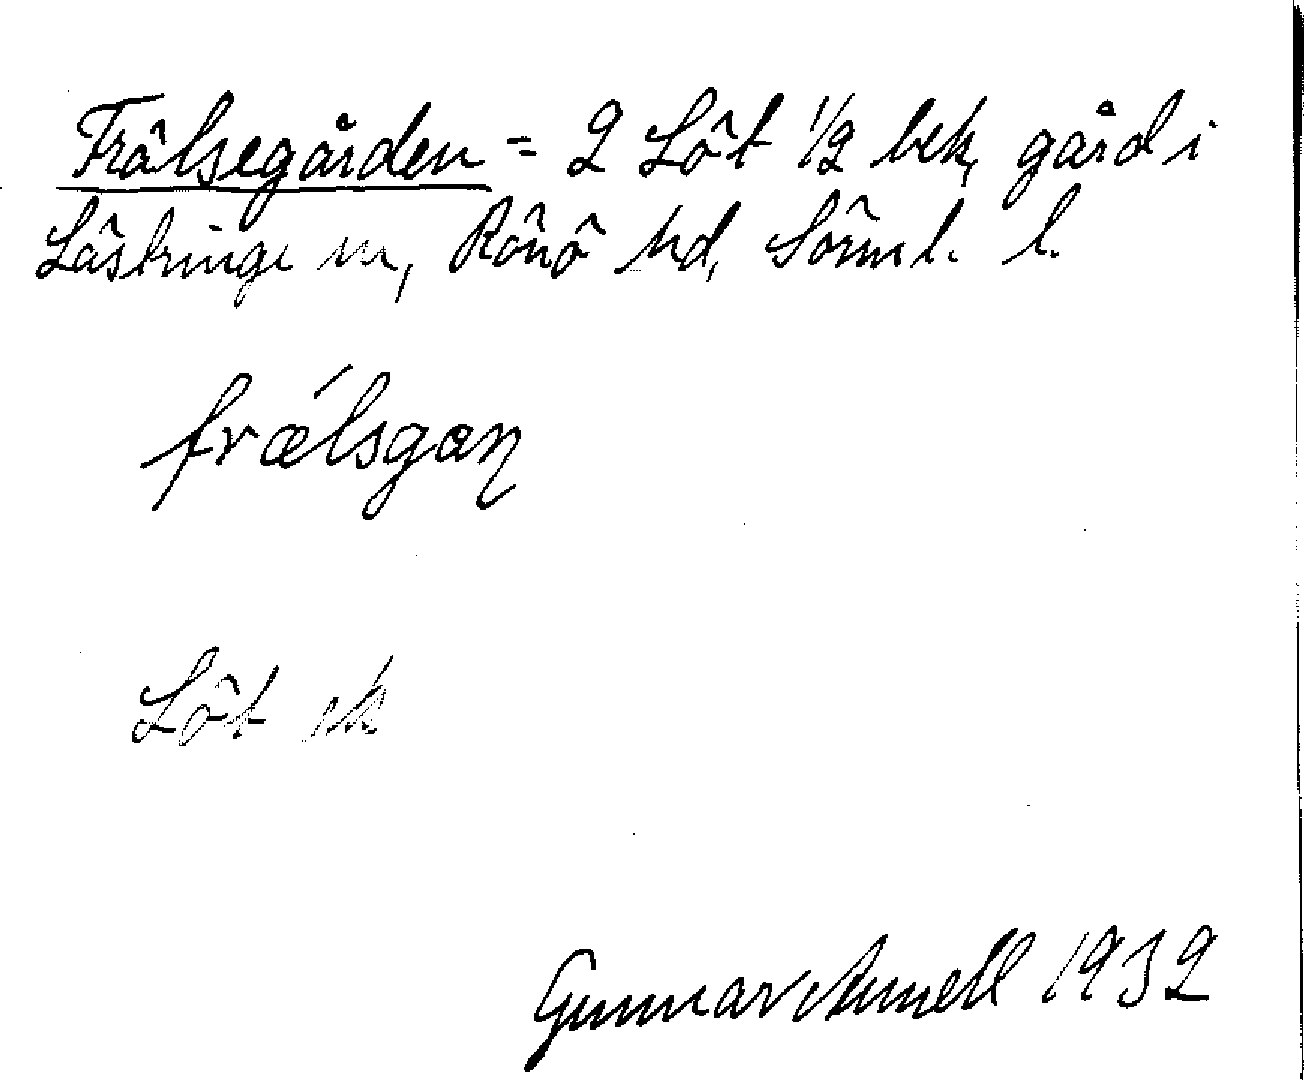 Frälsegården = 2 Löt 1/2 bek, gård i
Lästringe sn, Rönö hd, Sörml. l.
frælsgaɳ
Löt ek
Gunnar Amell 1932